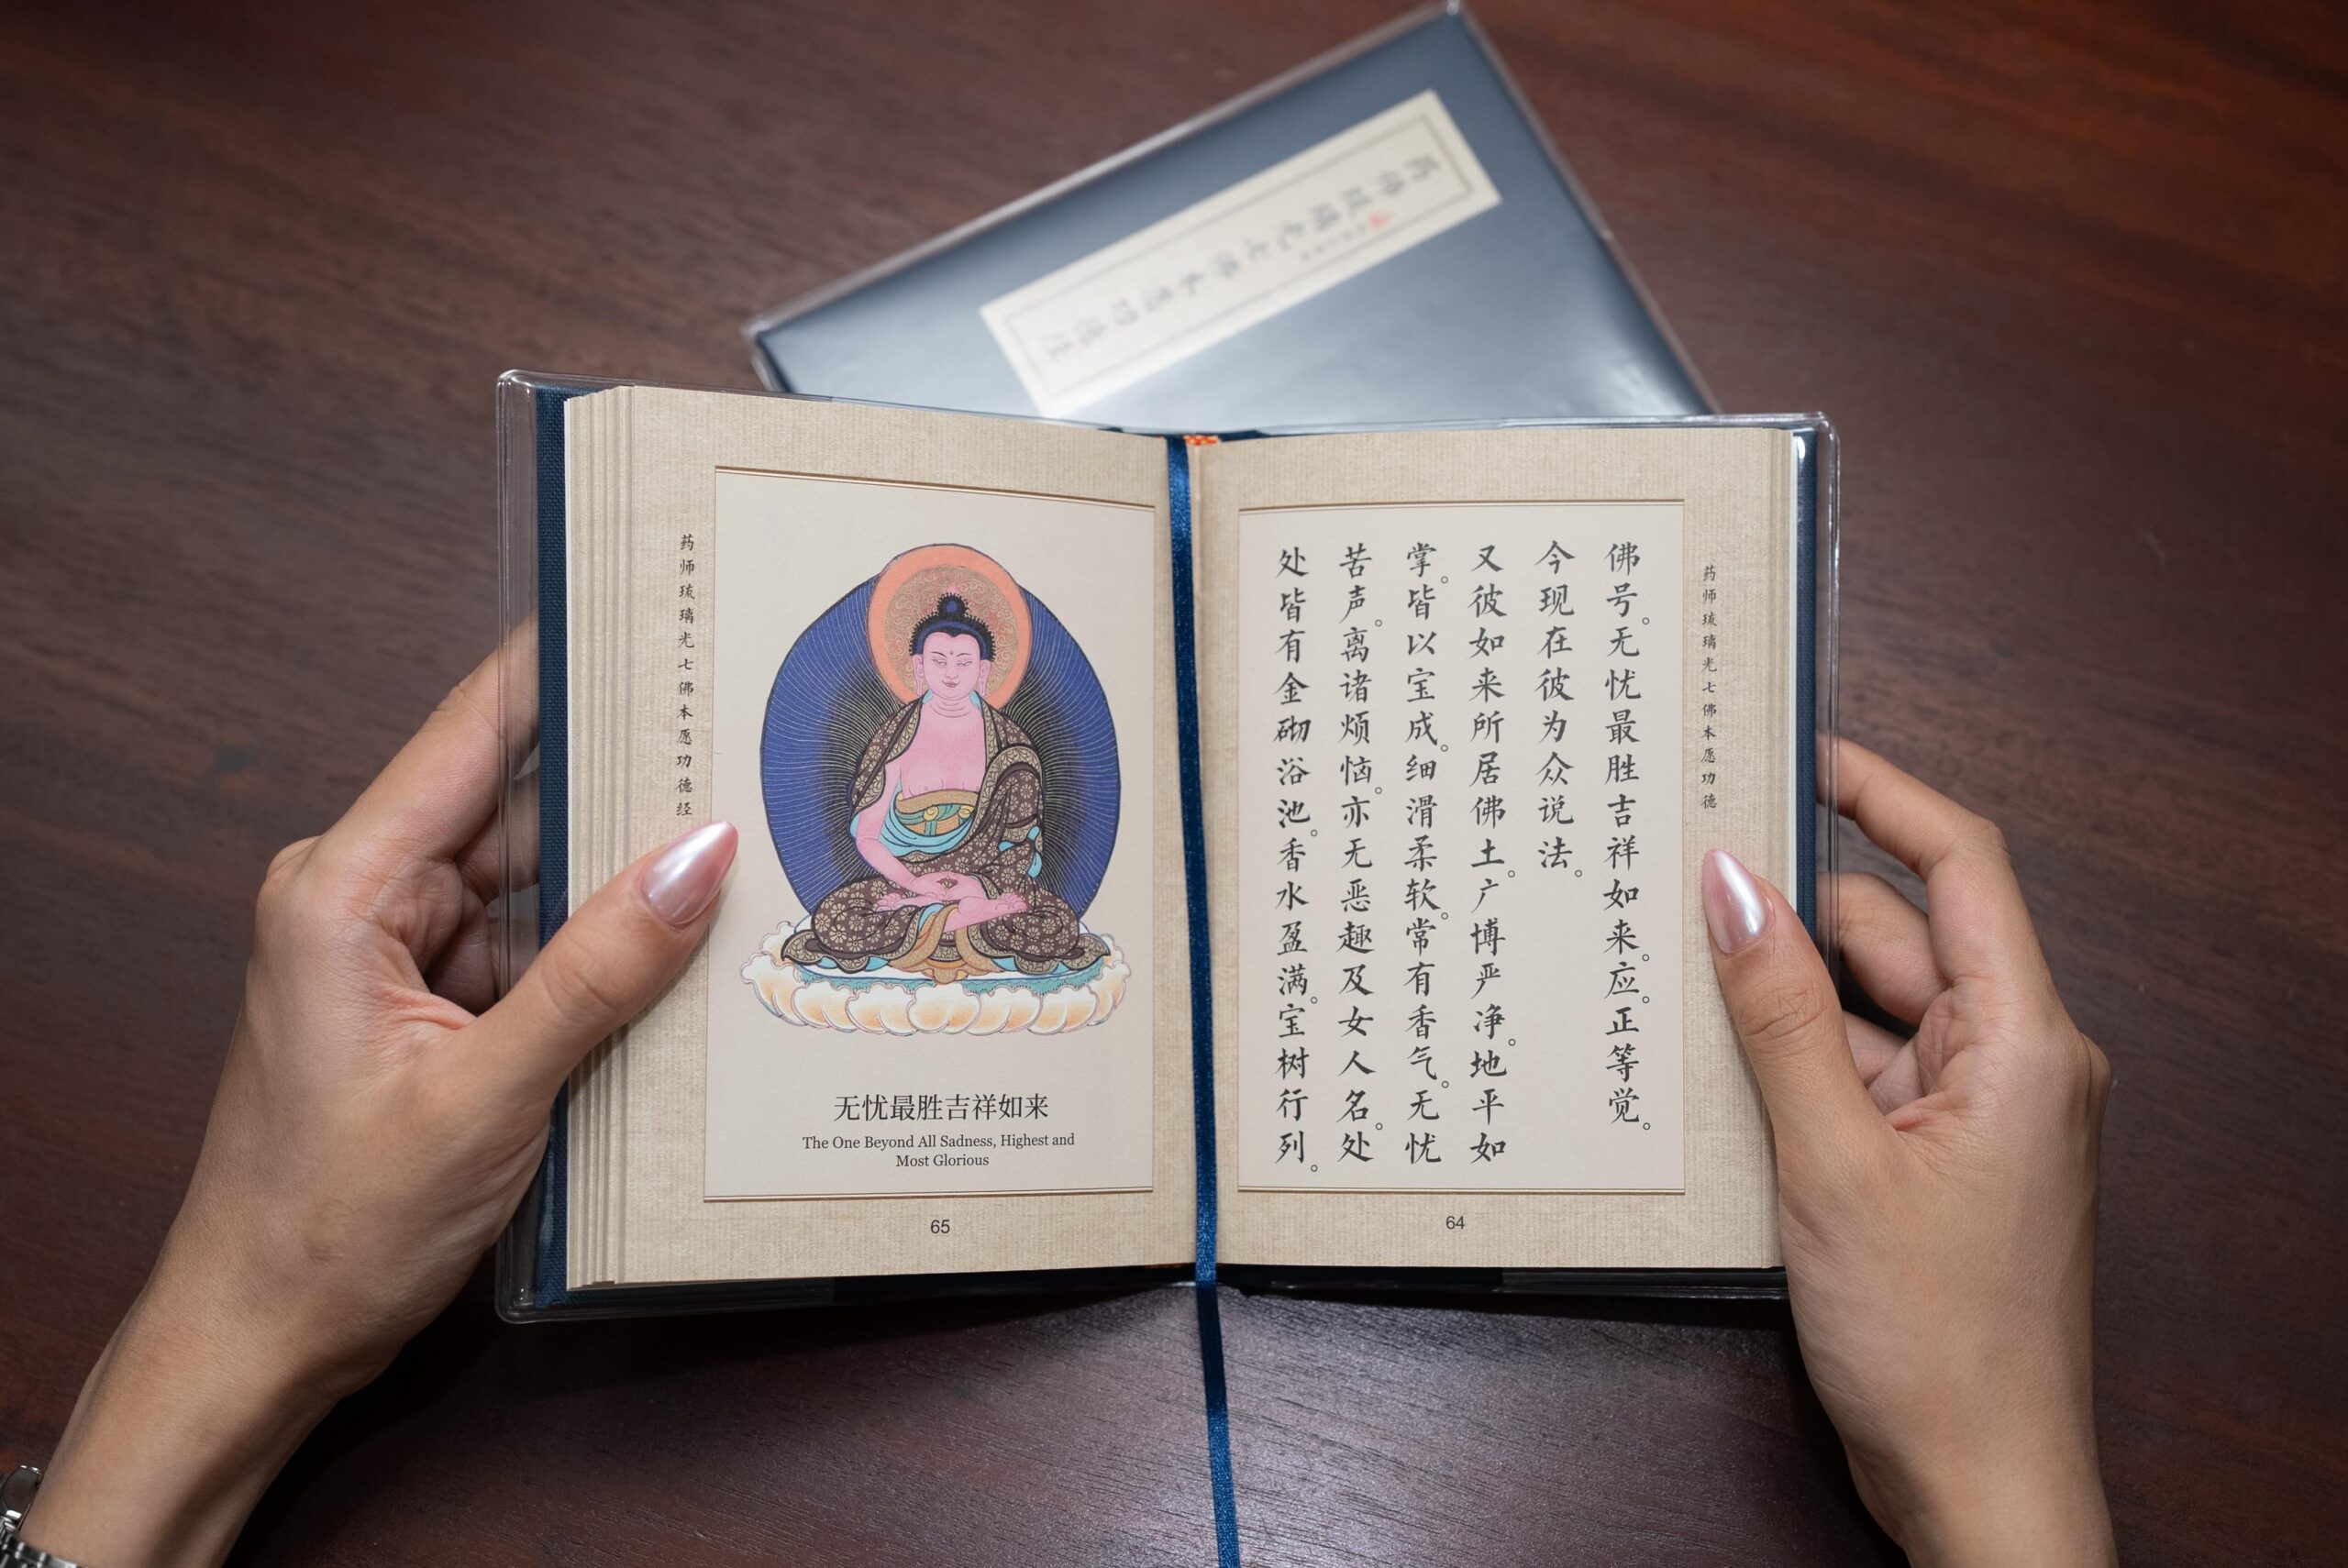 药师琉璃光七佛本愿功德经
药师琉璃光七佛本愿功德
佛号。无忧最胜吉祥如来。应。正等觉。
今现在彼为众说法。
又彼如来所居佛土。广博严净。地平如
掌。皆以宝成。细滑柔软。常有香气。无忧
苦声。离诸烦恼。亦无恶趣及女人名。处
处皆有金砌浴池。香水盈满。宝树行列。
64
无忧最胜吉祥如来
The One Beyond All Sadness, Highest and
Most Glorious
65
药师琉璃光七佛本愿功德经